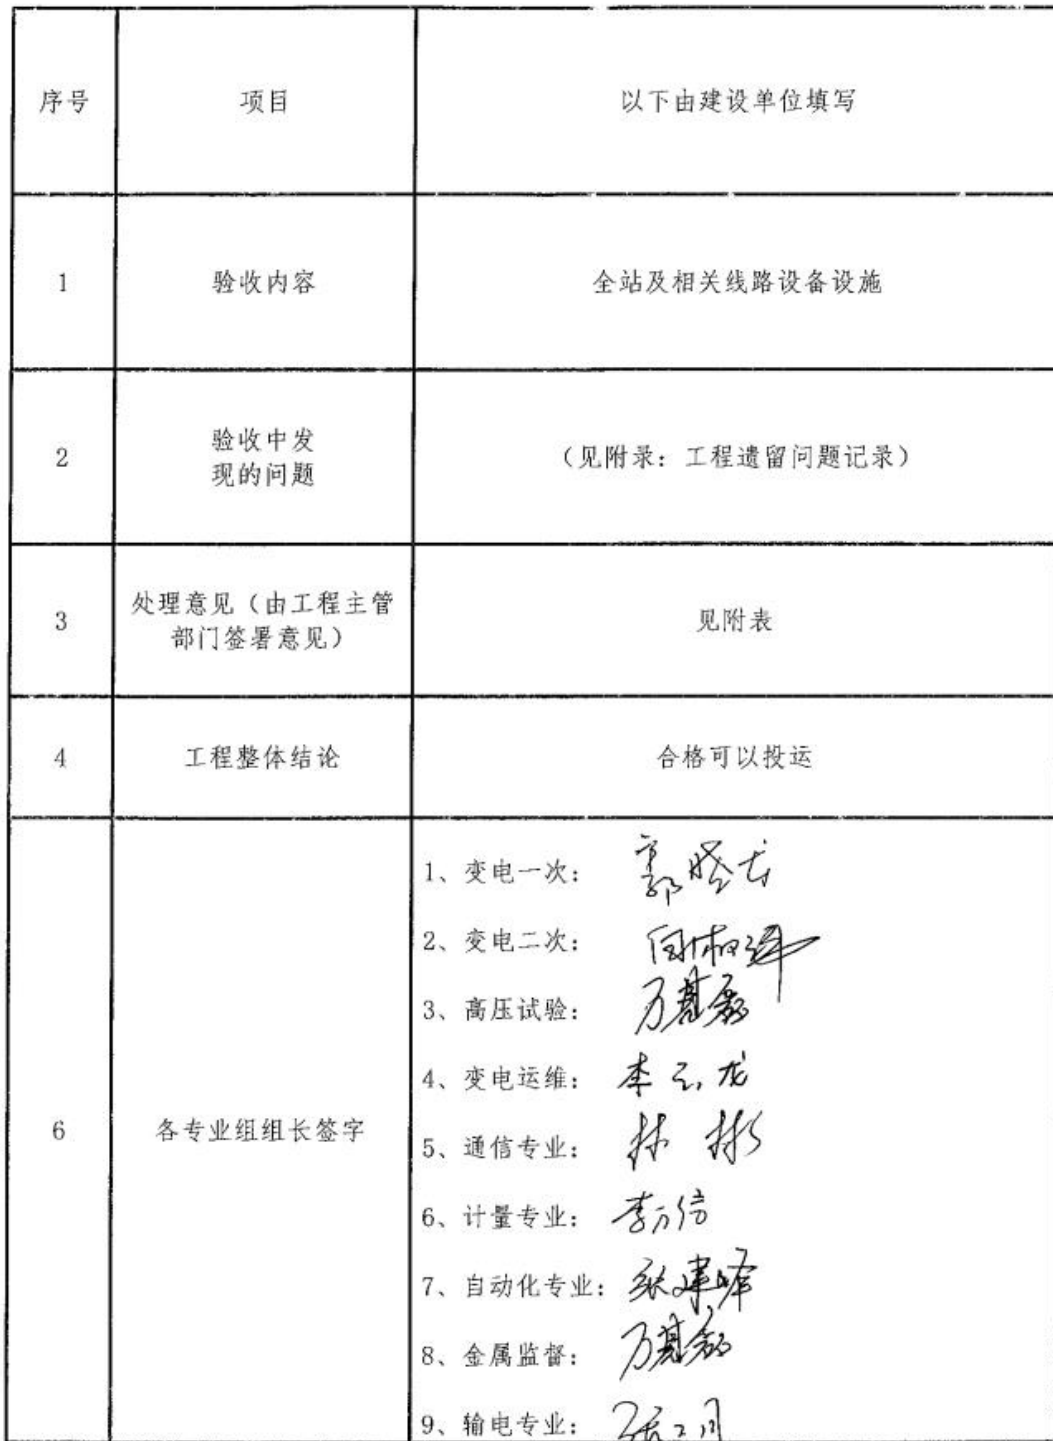 序号
项目
以下由建设单位填写
1
验收内容
全站及相关线路设备设施
2
验收中发
现的问题
（见附录：工程遗留问题记录）
3
处理意见（由工程主管
部门签署意见）
见附表
4
工程整体结论
合格可以投运
6
各专业组组长签字
1、变电一次：
2、变电二次：
3、高压试验：
4、变电运维：
5、通信专业：林 彬
6、计量专业：
7、自动化专业：张建峰
8、金属监督：
9、输电专业：